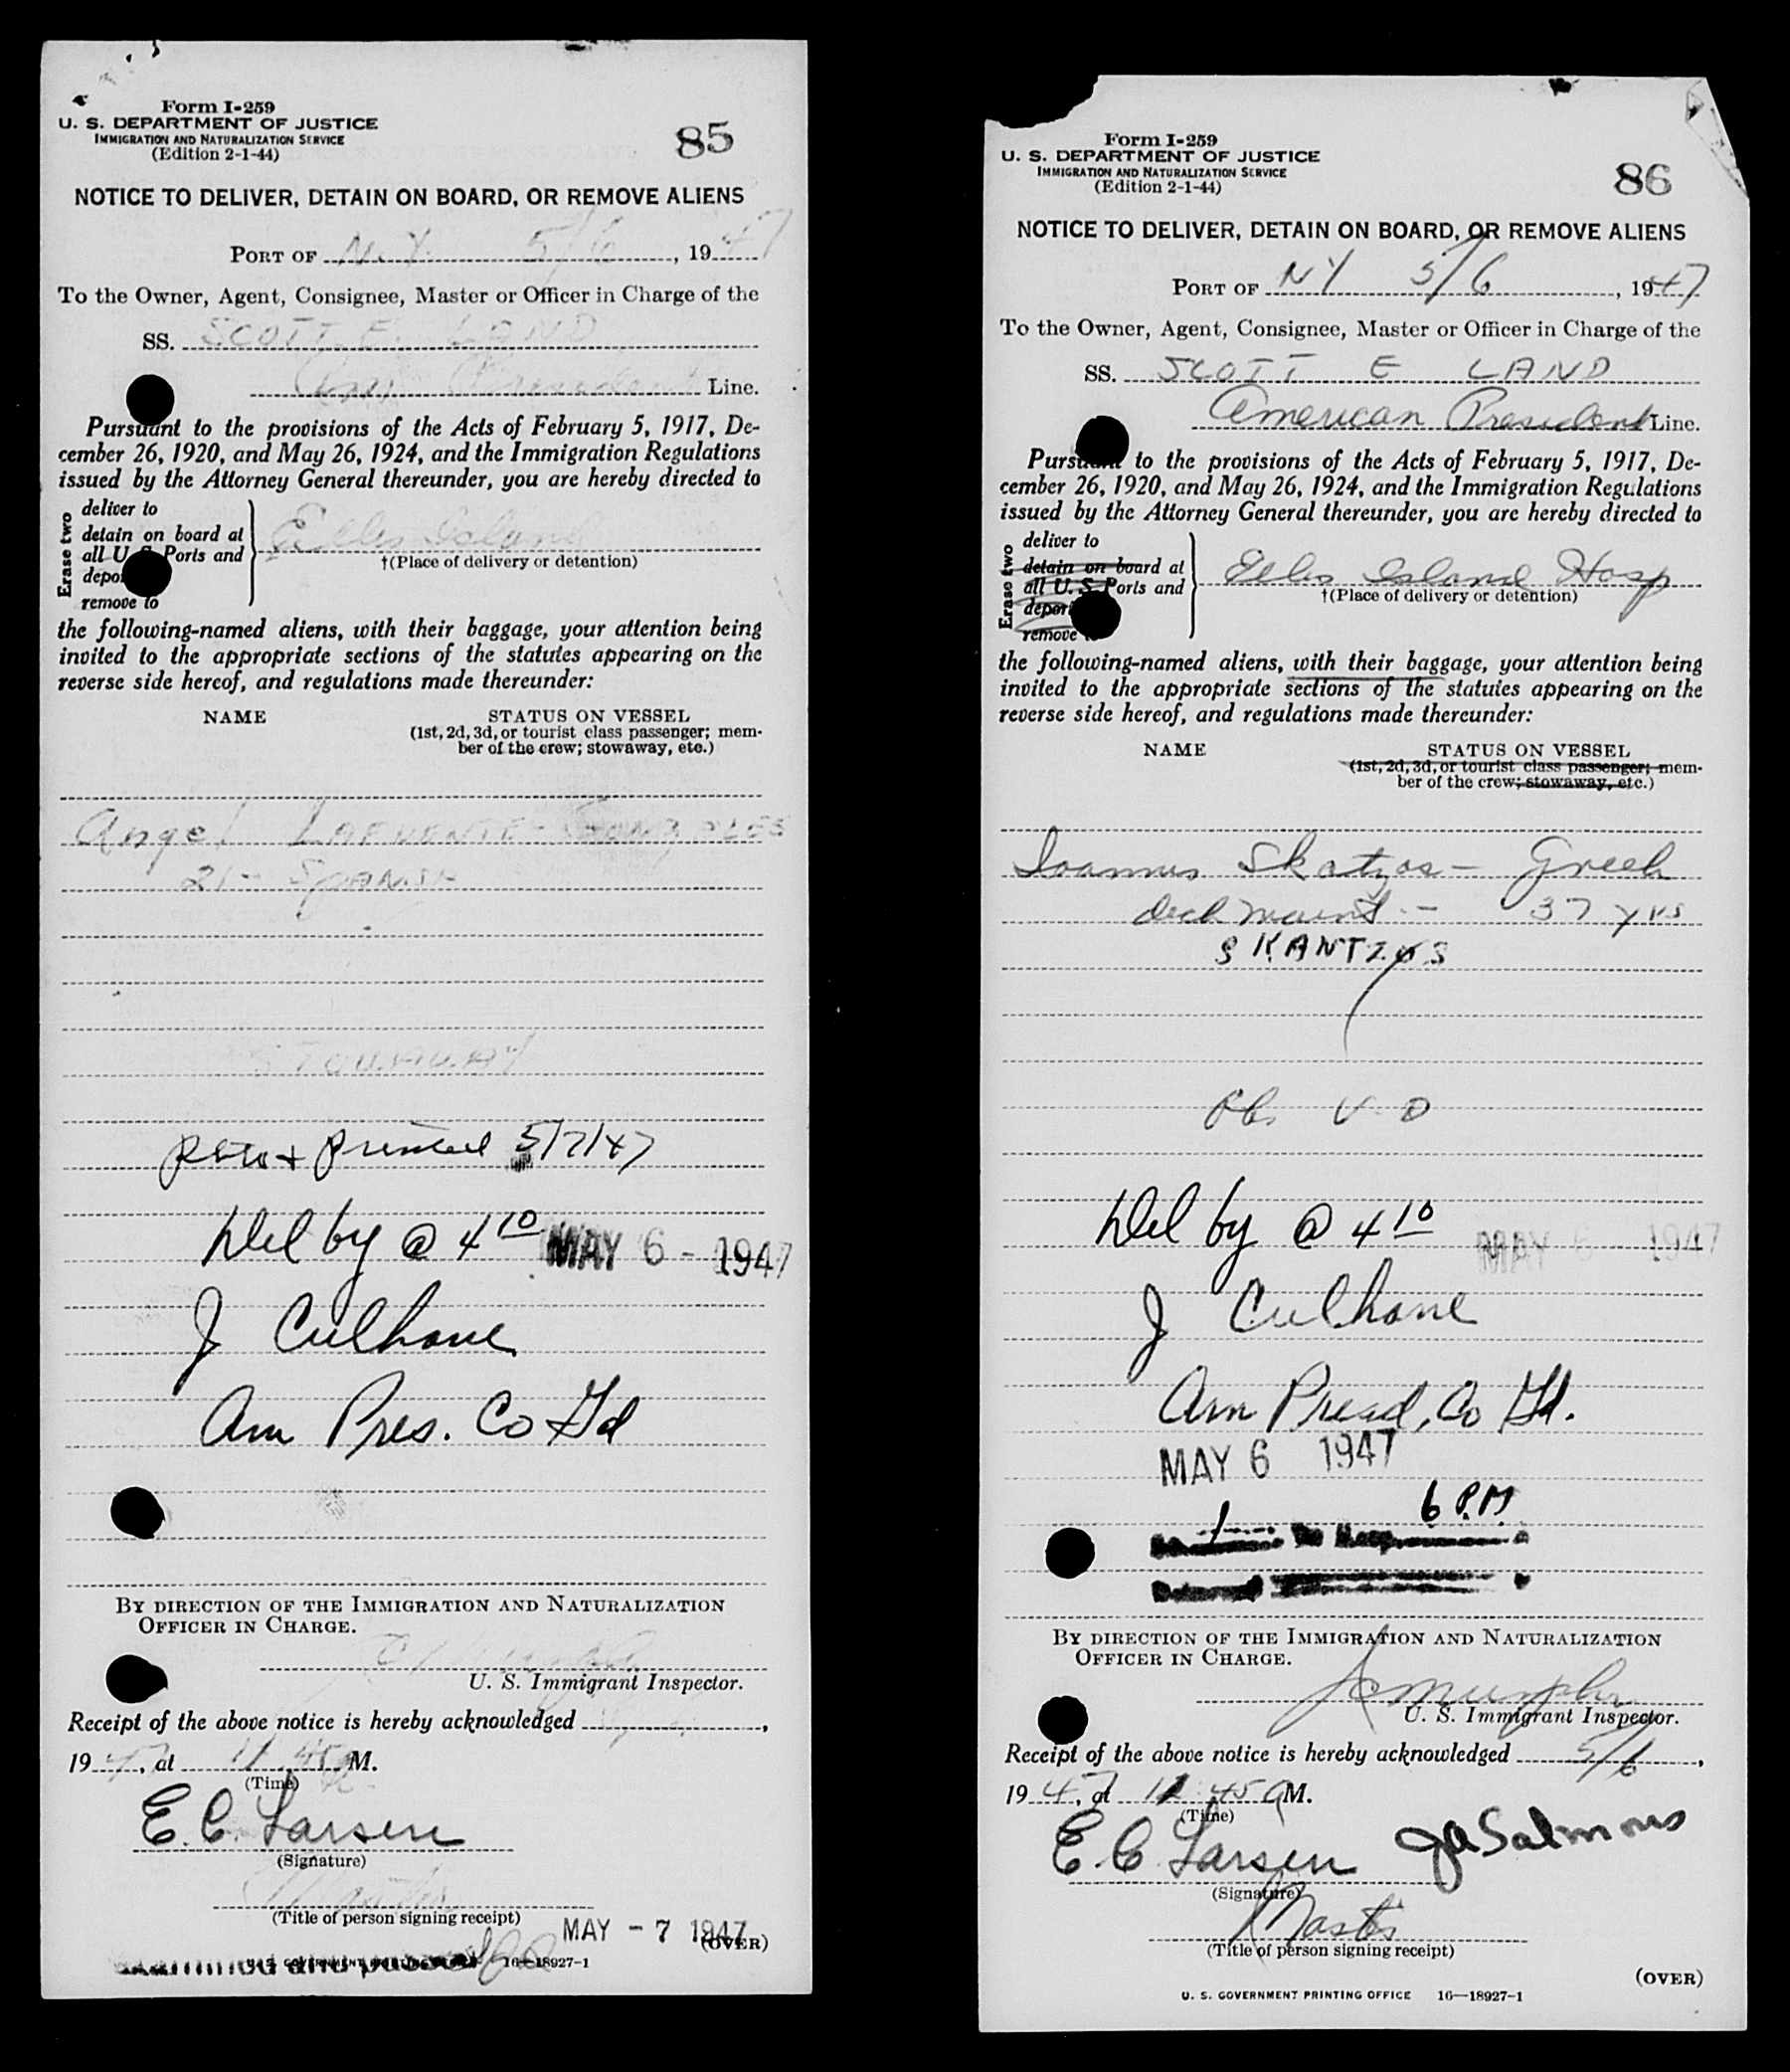 Form I-259
U. S. DEPARTMENT OF JUSTICE
IMMIGRATION AND NATURALIZATION SERVICE
(Edition 2-1-44)
85
NOTICE TO DELIVER, DETAIN ON BOARD, OR REMOVE ALIENS
PORT OF N.Y. 5/6, 1947
To the Owner, Agent, Consignee, Master or Officer in Charge of the
SS. SCOTT E. LAND
Am. President Line.
Pursuant to the provisions of the Acts of February 5, 1917, De-
cember 26, 1920, and May 26, 1924, and the Immigration Regulations
issued by the Attorney General thereunder, you are hereby directed to
Erase two
deliver to
detain on board at
all U. S. Ports and
remove to
Ellis Island
†(Place of delivery or detention)
the following-named aliens, with their baggage, your attention being
invited to the appropriate sections of the statutes appearing on the
reverse side hereof, and regulations made thereunder:
NAME STATUS ON VESSEL
(1st, 2d, 3d, or tourist class passenger; mem-
ber of the crew; stowaway, etc.)
Angel LAFUENTE-
21 - SPANISH
STOWAWAY
+ Printed 5/7/47
Del by @ 4 10 MAY 6 - 1947
J Culhane
Am Pres. Co Gd
BY DIRECTION OF THE IMMIGRATION AND NATURALIZATION
OFFICER IN CHARGE.
U. S. Immigrant Inspector.
Receipt of the above notice is hereby acknowledged ,
1947, at 11 45 A M.
(Time)
E. C. Larsen
(Signature)
Master
(Title of person signing receipt)
MAY - 7 1947
(OVER)
Examined and passed
16—18927-1
Form I-259
U. S. DEPARTMENT OF JUSTICE
IMMIGRATION AND NATURALIZATION SERVICE
(Edition 2-1-44)
86
NOTICE TO DELIVER, DETAIN ON BOARD, OR REMOVE ALIENS
PORT OF NY 5/6, 1947
To the Owner, Agent, Consignee, Master or Officer in Charge of the
SS. SCOTT E LAND
American President Line.
Pursuant to the provisions of the Acts of February 5, 1917, De-
cember 26, 1920, and May 26, 1924, and the Immigration Regulations
issued by the Attorney General thereunder, you are hereby directed to
Erase two
deliver to
detain on board at
all U. S. Ports and
remove
Ellis Island Hosp
†(Place of delivery or detention)
the following-named aliens, with their baggage, your attention being
invited to the appropriate sections of the statutes appearing on the
reverse side hereof, and regulations made thereunder:
NAME STATUS ON VESSEL
(1st, 2d, 3d, or tourist class passenger; mem-
ber of the crew; stowaway, etc.)
Ioannis Skatzos - Greek
deck maint. - 37 yrs
SKANTZOS
V D
Del by @ 4 10 MAY 6 1947
J Culhane
Am Presd. Co Gd.
MAY 6 1947
6 P.M.
1
BY DIRECTION OF THE IMMIGRATION AND NATURALIZATION
OFFICER IN CHARGE.
Murphy
U. S. Immigrant Inspector.
Receipt of the above notice is hereby acknowledged 5/6,
1947, at 11 45 A M.
(Time)
E. C. Larsen JA Salmons
(Signature)
Master
(Title of person signing receipt)
(OVER)
U. S. GOVERNMENT PRINTING OFFICE 16—18927-1